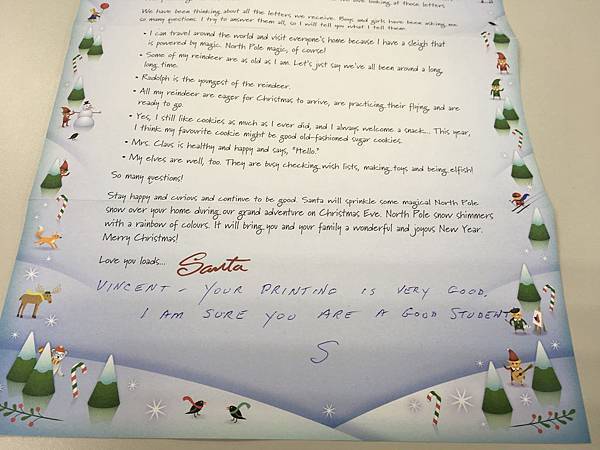 We have been thinking about all the letters we receive. Boys and girls have been asking me
so many questions. I try to answer them all, so I will tell you what I tell them:
• I can travel around the world and visit everyone's home because I have a sleigh that
is powered by magic. North Pole magic, of course!
• Some of my reindeer are as old as I am. Let's just say we've all been around a long,
long time.
• Rudolph is the youngest of the reindeer.
• All my reindeer are eager for Christmas to arrive, are practicing their flying, and are
ready to go.
• Yes, I still like cookies as much as I ever did, and I always welcome a snack... This year,
I think my favourite cookie might be good old-fashioned sugar cookies.
• Mrs. Claus is healthy and happy and says, "Hello."
• My elves are well, too. They are busy checking wish lists, making toys and being elfish!
So many questions!
Stay happy and curious and continue to be good. Santa will sprinkle some magical North Pole
snow over your home during our grand adventure on Christmas Eve. North Pole snow shimmers
with a rainbow of colours. It will bring you and your family a wonderful and joyous New Year.
Merry Christmas!
Love you loads... Santa
VINCENT - YOUR PRINTING IS VERY GOOD.
I AM SURE YOU ARE A GOOD STUDENT
S